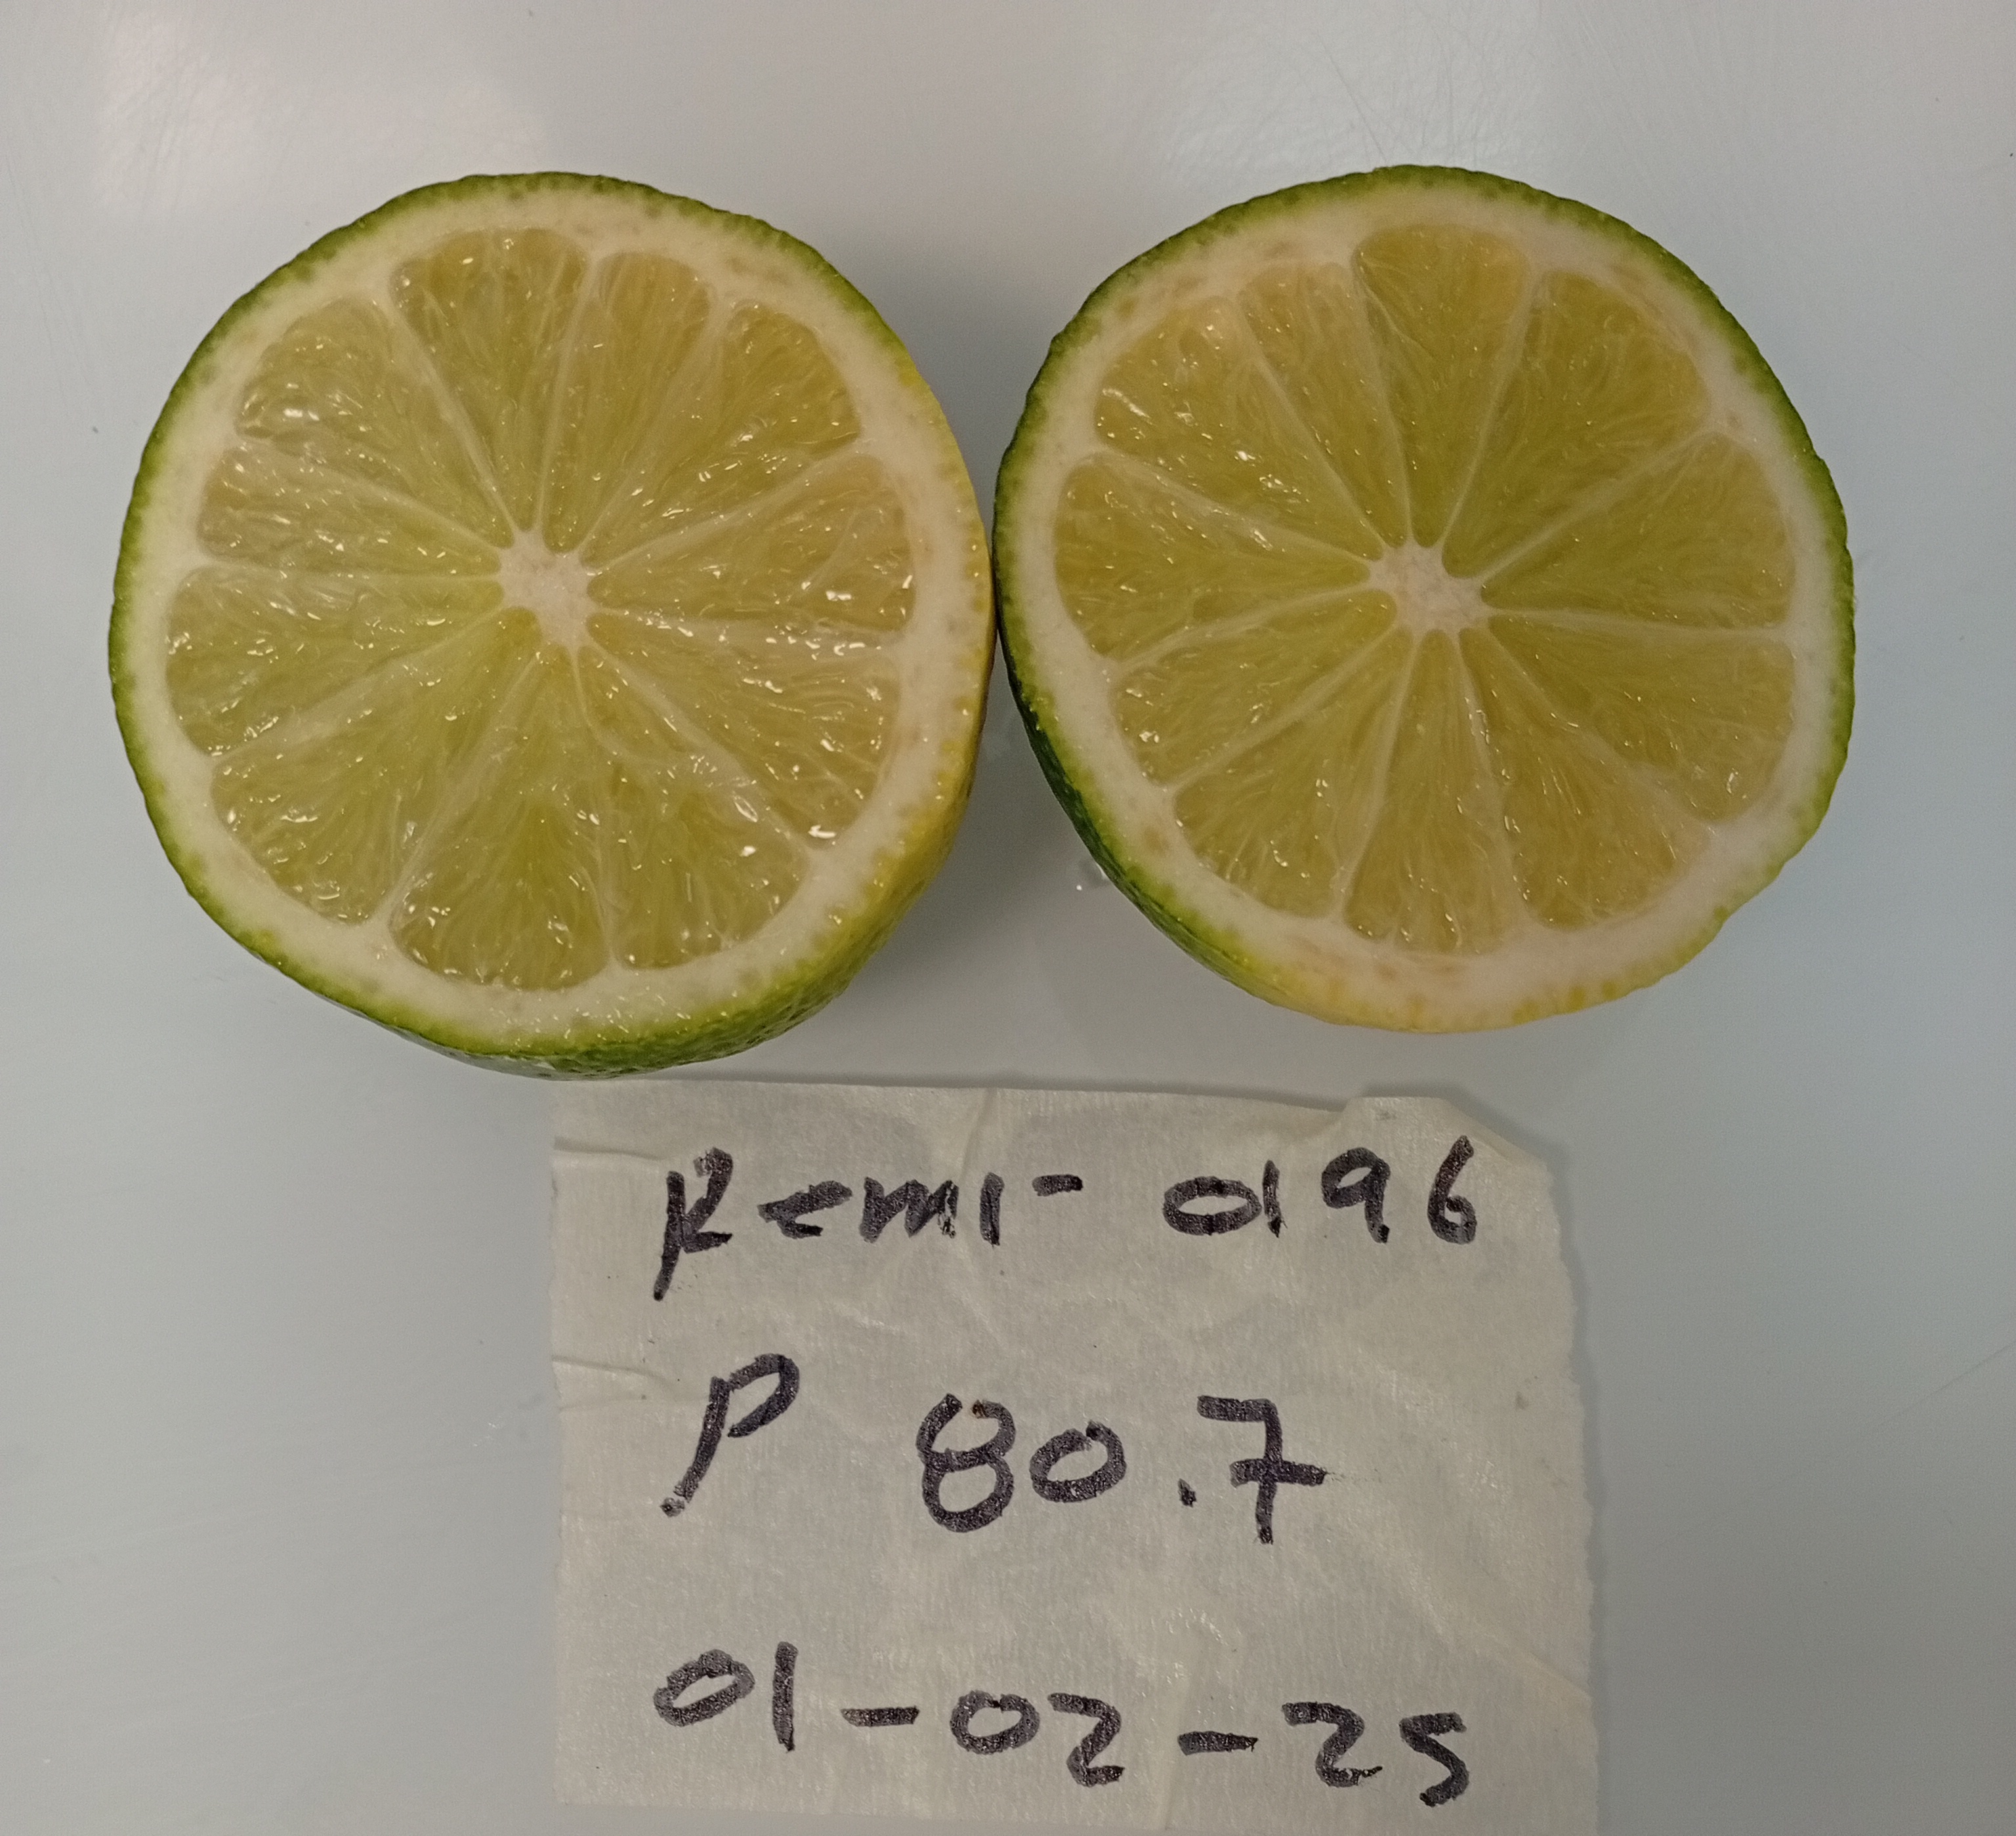 Remi- 0196
P 80.7
01-02-25